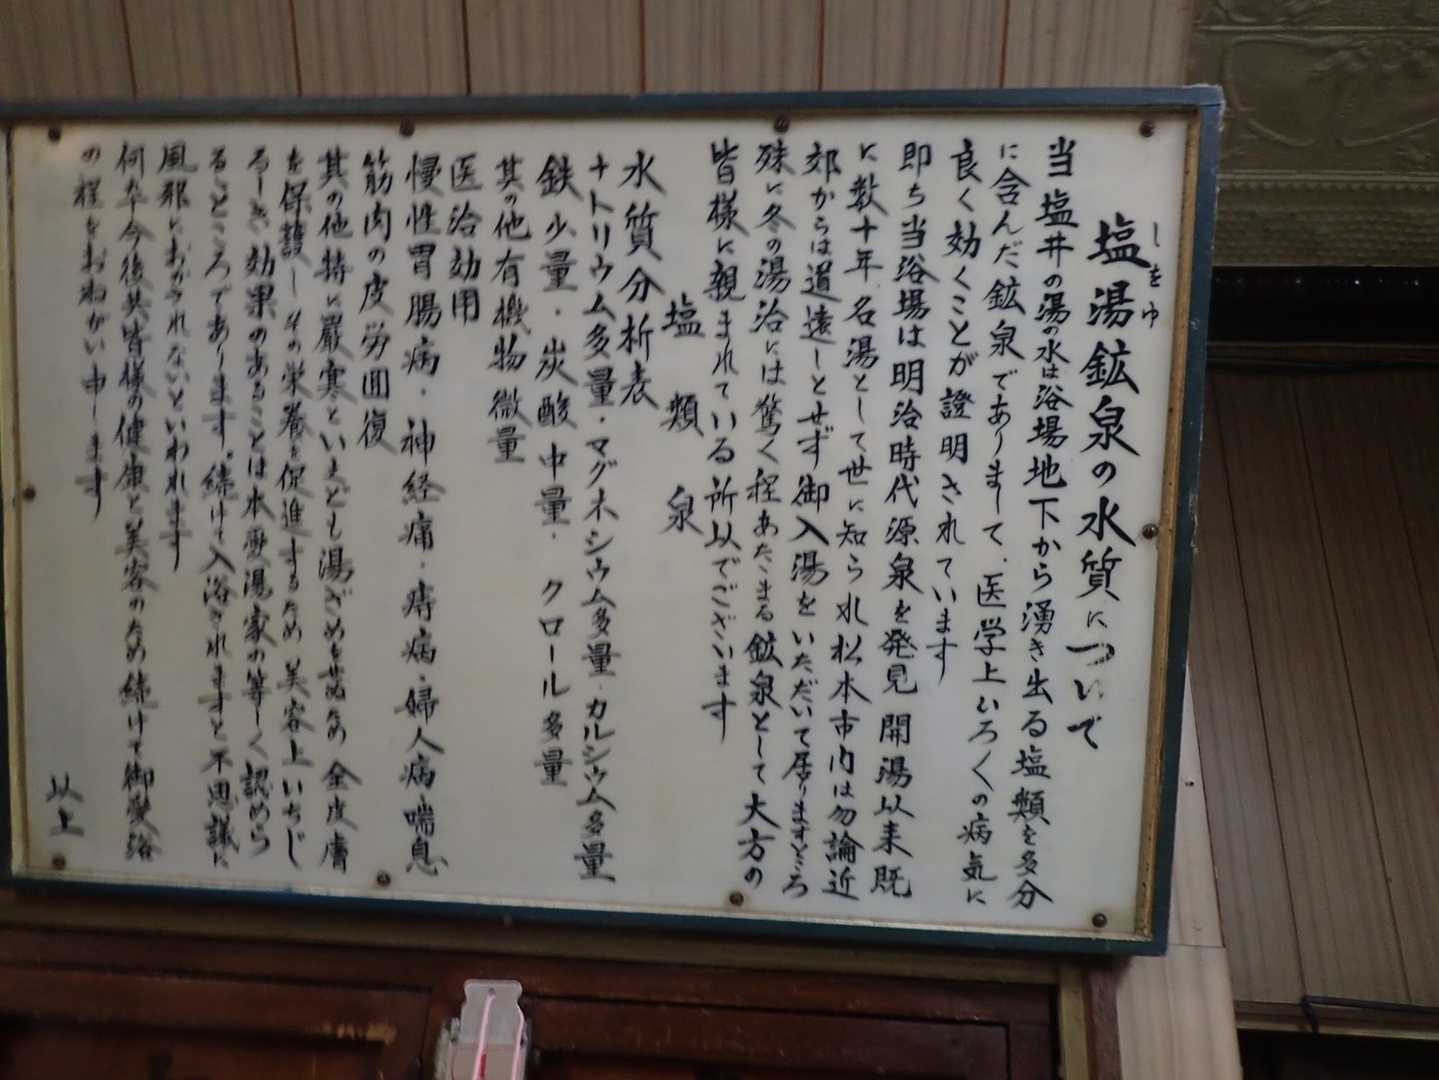 塩湯鉱泉の水質について
しをゆ
当塩井の湯の水は浴場地下から湧き出る塩類を多分
に含んだ鉱泉でありまして、医学上いろくの病気に
良く効くことが證明されています
即ち当浴場は明治時代源泉を発見 開湯以来既
に数十年名湯として世に知られ松本市内は勿論近
郊からは道遠しとせず御入湯をいただいて居りますところ
殊に冬の湯治には驚く程あたゝまる鉱泉として大方の
皆様に親まれている所以でございます
塩類泉
水質分析表
ナトリウム多量・マグネシウム多量・カルシウム多量
鉄少量・炭酸中量・クロール多量
其の他有機物微量
医治効用
慢性胃腸病・神経痛・痔病・婦人病・喘息
筋肉の皮労回復
其の他特に厳寒といえども湯ざめをせぬため 全皮膚
を保護しその栄養を促進するため 美容上いちじ
るしき効果のあることは本愛湯家の等しく認めら
るところであります。続けて入浴されますと不思議に
風邪におかされないといわれます
何卒今後共皆様の健康と美容のため続けて御愛浴
の程をおねがい申します
以上